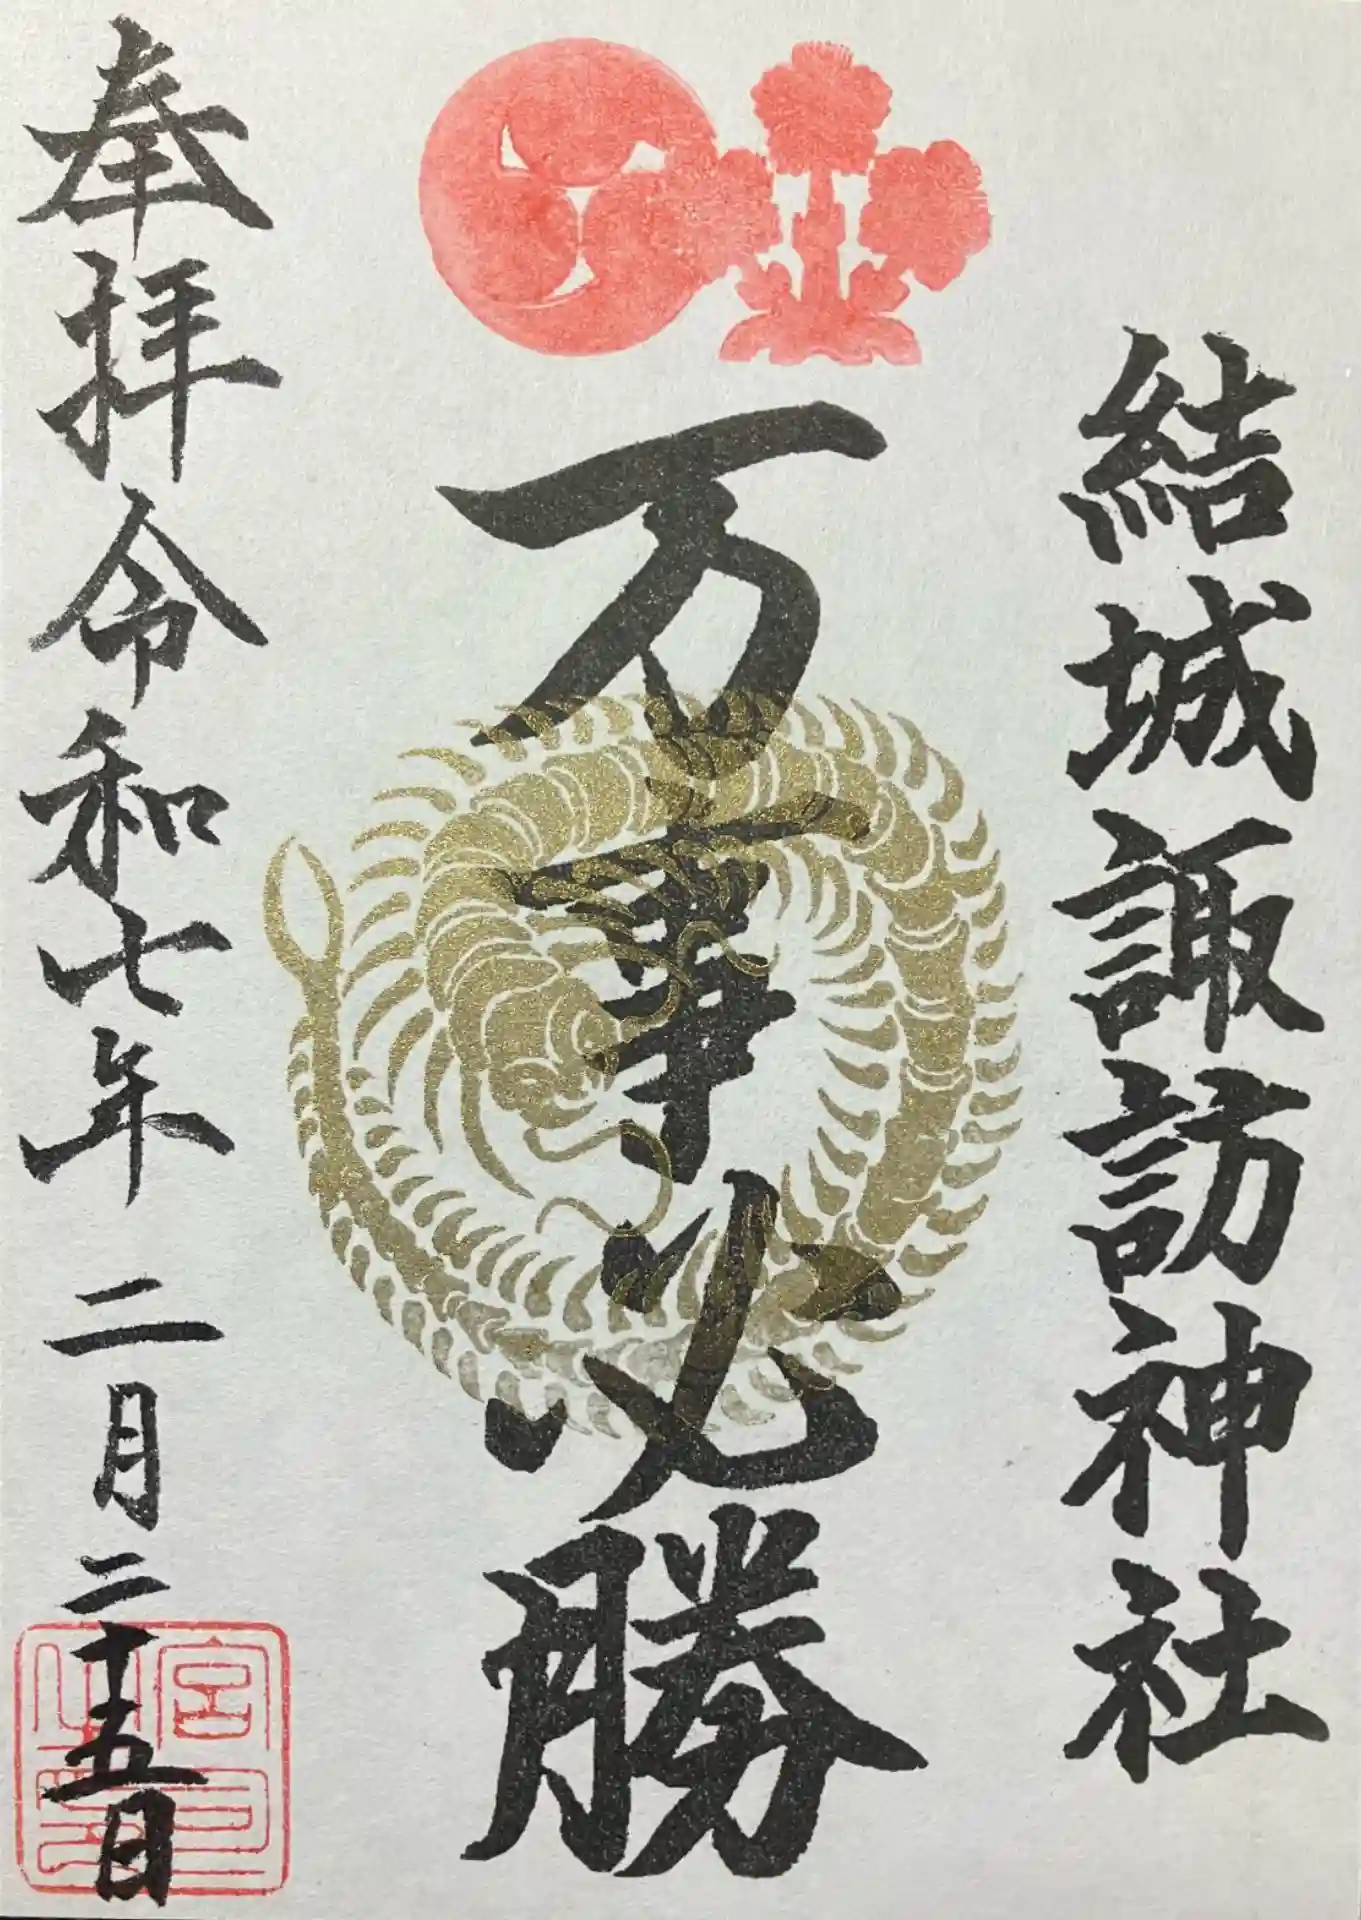 結城諏訪神社
万事必勝
奉拝令和七年二月二十五日